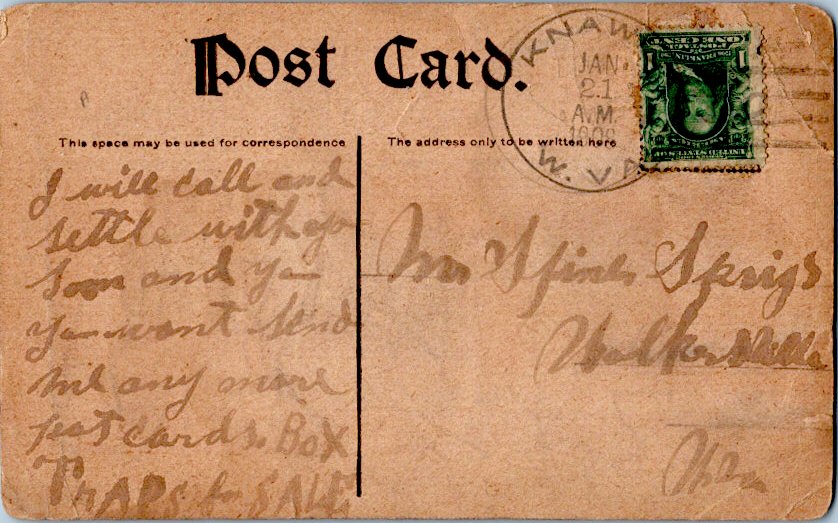 Post Card.
KNAWL
JAN
21
A.M.
W. VA.
1
ONE CENT
POSTAGE
FRANKLIN
UNITED STATES OF
This space may be used for correspondence
The address only to be written here
I will call and
settle with you
soon and you
you want send
me any more
post cards. BOX
TrAPS for SALE
Mr Sprigs
Walkersville
W Va